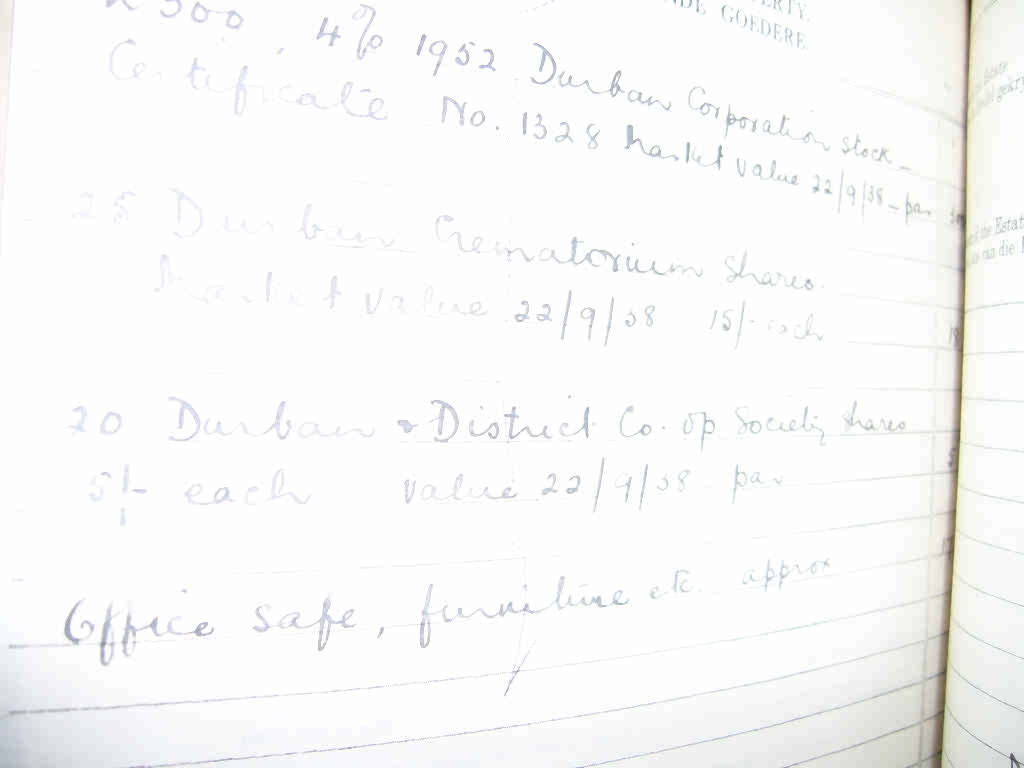 GOEDERE.
£500. 4% 1952 Durban Corporation stock -
Certificate No. 1328 Market value 22/9/38 - par
25 Durban Crematorium Shares.
Market value 22/9/38 15/- each
20 Durban & District Co-op Society Shares
5/- each value 22/9/38 par
Office safe, furniture etc. approx